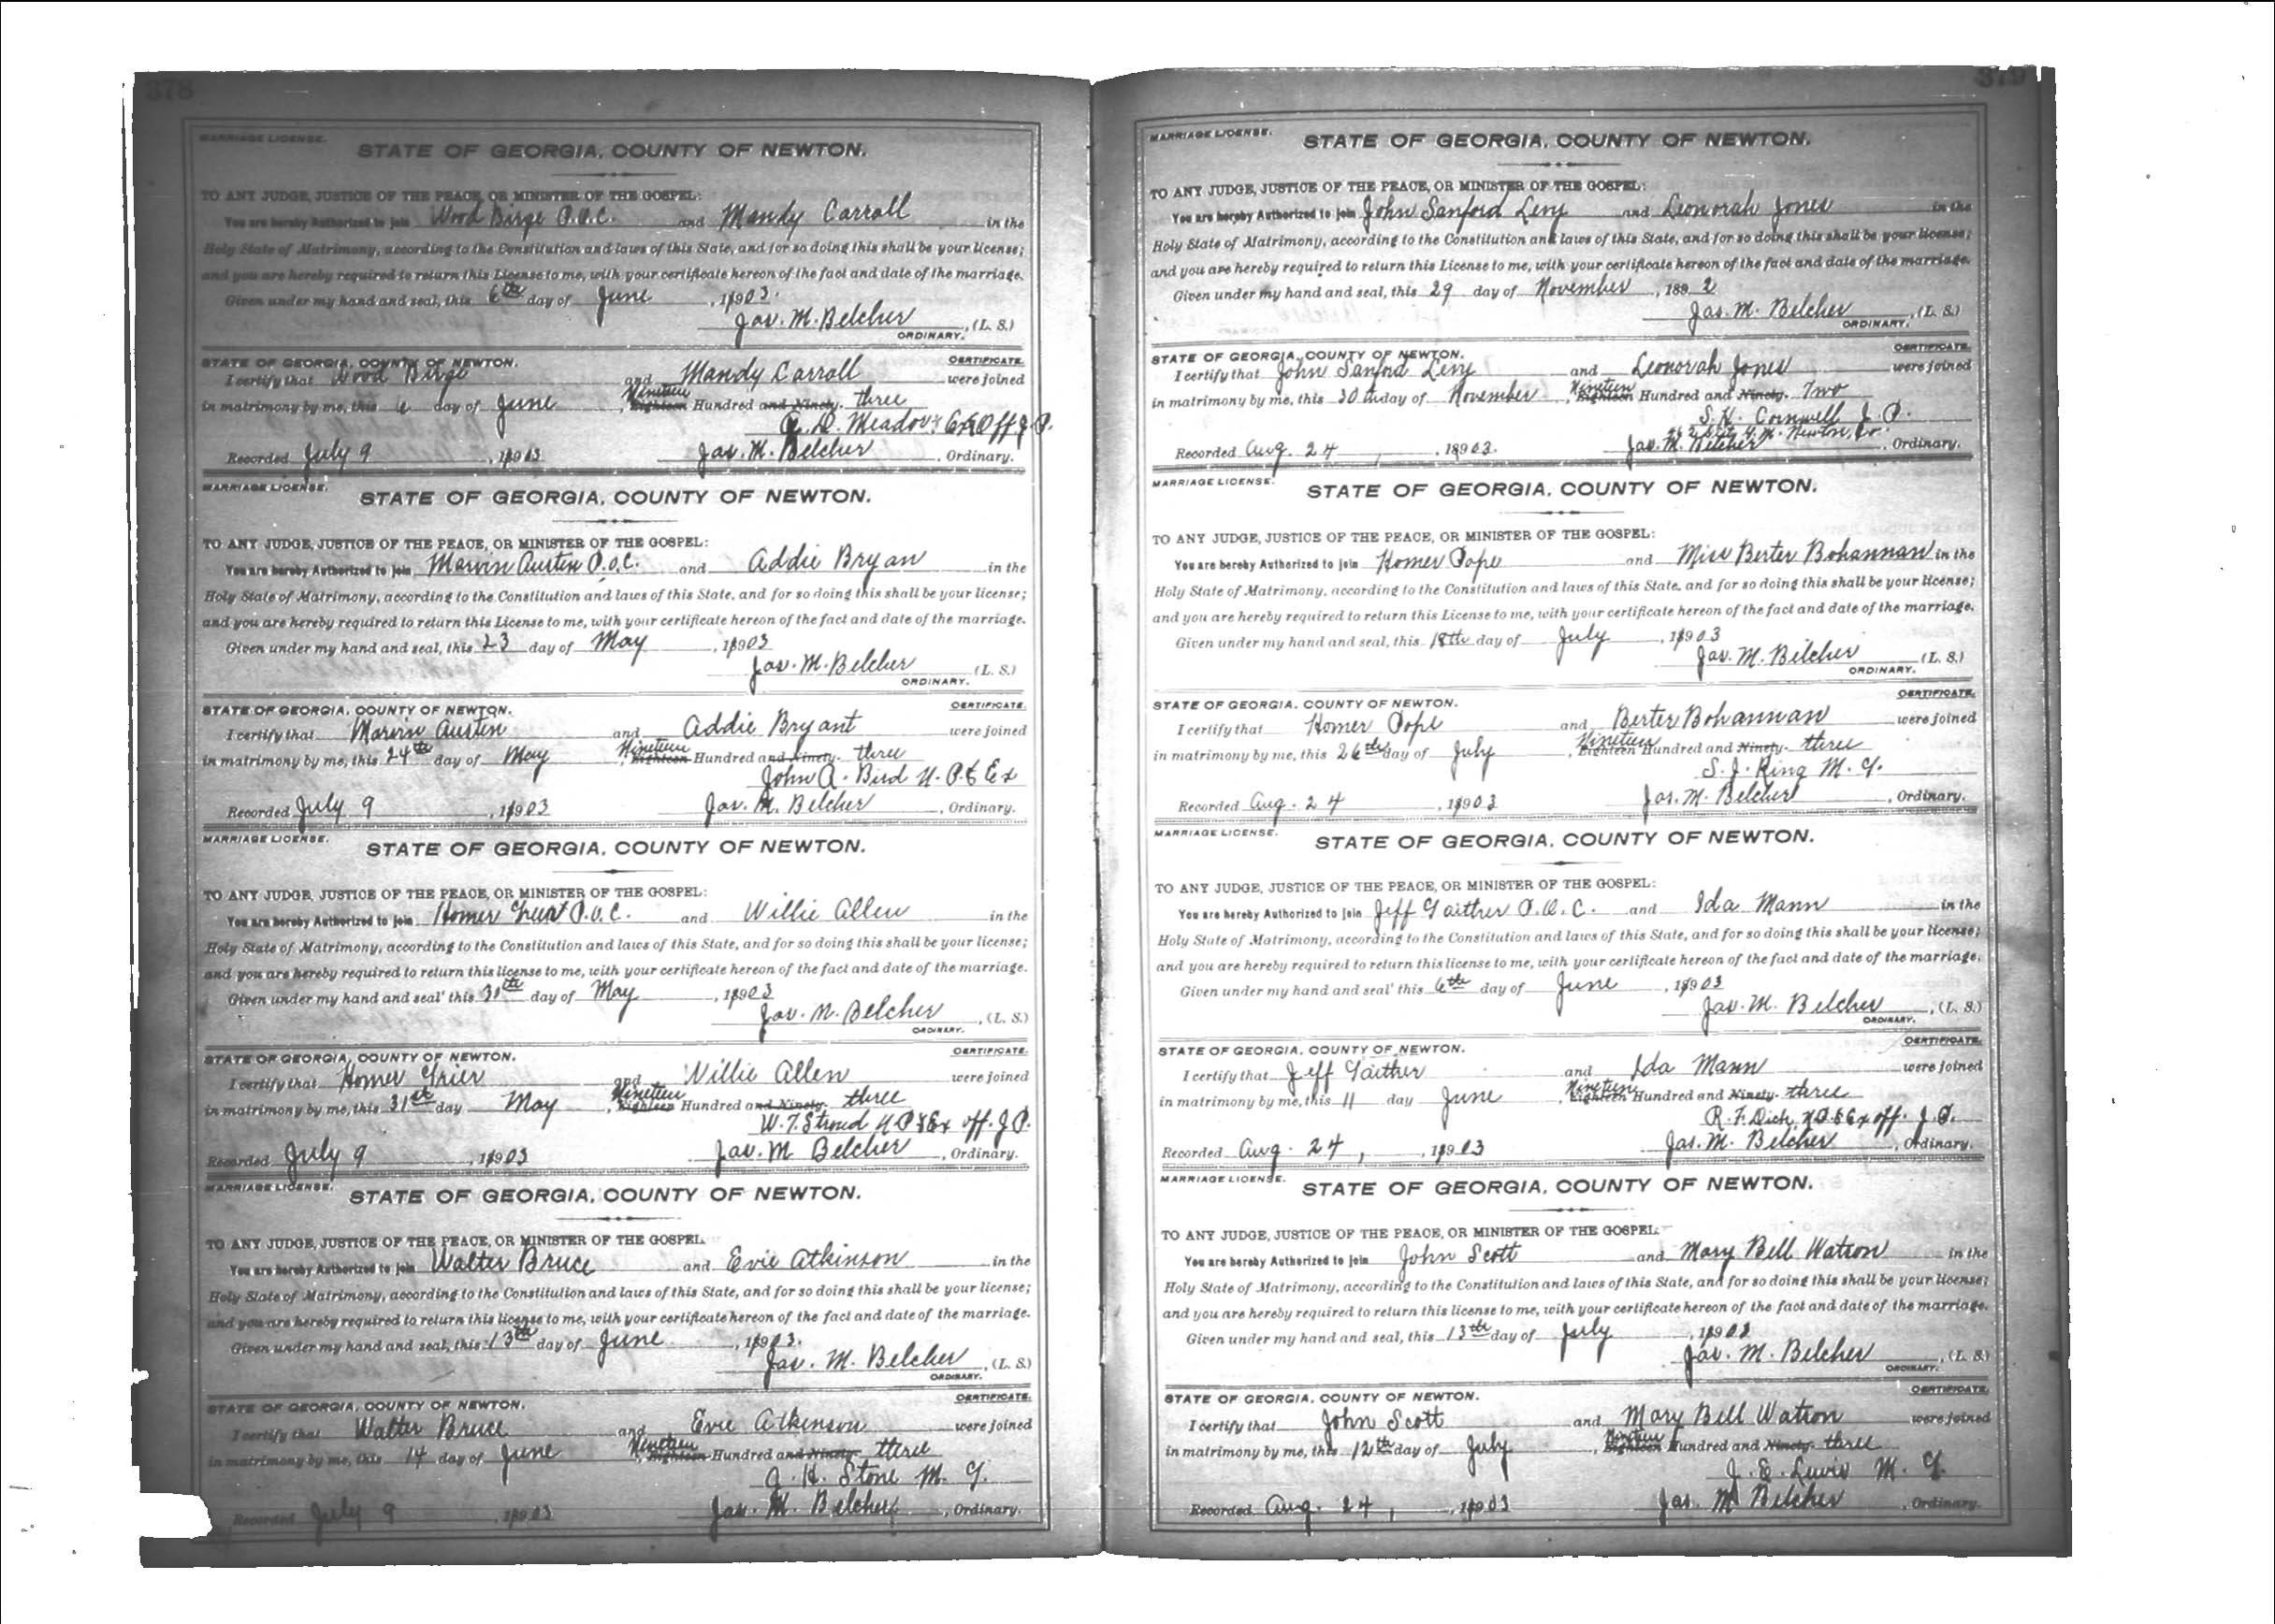 378
MARRIAGE LICENSE.
STATE OF GEORGIA, COUNTY OF NEWTON.
TO ANY JUDGE, JUSTICE OF THE PEACE, OR MINISTER OF THE GOSPEL:
You are hereby Authorized to join Wood Birge P.O.C. and Mandy Carroll in the
Holy State of Matrimony, according to the Constitution and laws of this State, and for so doing this shall be your license;
and you are hereby required to return this License to me, with your certificate hereon of the fact and date of the marriage.
Given under my hand and seal, this 6th day of June, 1903.
Jas. M. Belcher, (L. S.)
ORDINARY.
STATE OF GEORGIA, COUNTY OF NEWTON. CERTIFICATE.
I certify that Wood Birge and Mandy Carroll were joined
in matrimony by me, this 6 day of June, Nineteen Eighteen Hundred and Ninety- three
D. Meadows Ex Off J. P.
Recorded July 9, 1903 Jas. M. Belcher, Ordinary.
MARRIAGE LICENSE.
STATE OF GEORGIA, COUNTY OF NEWTON.
TO ANY JUDGE, JUSTICE OF THE PEACE, OR MINISTER OF THE GOSPEL:
You are hereby Authorized to join Marvin Austin P.O.C. and Addie Bryan in the
Holy State of Matrimony, according to the Constitution and laws of this State, and for so doing this shall be your license;
and you are hereby required to return this License to me, with your certificate hereon of the fact and date of the marriage.
Given under my hand and seal, this 23 day of May, 1903
Jas. M. Belcher (L. S.)
ORDINARY.
STATE OF GEORGIA, COUNTY OF NEWTON. CERTIFICATE.
I certify that Marvin Austin and Addie Bryant were joined
in matrimony by me, this 24th day of May, Nineteen Eighteen Hundred and Ninety- three
John A. Bird N. P. & Ex
Recorded July 9, 1903 Jas. M. Belcher, Ordinary.
MARRIAGE LICENSE.
STATE OF GEORGIA, COUNTY OF NEWTON.
TO ANY JUDGE, JUSTICE OF THE PEACE, OR MINISTER OF THE GOSPEL:
You are hereby Authorized to join Homer P.O.C. and Willie Allen in the
Holy State of Matrimony, according to the Constitution and laws of this State, and for so doing this shall be your license;
and you are hereby required to return this license to me, with your certificate hereon of the fact and date of the marriage.
Given under my hand and seal' this 30th day of May, 1903
Jas. M. Belcher, (L. S.)
ORDINARY.
STATE OF GEORGIA, COUNTY OF NEWTON. CERTIFICATE.
I certify that Homer Grier and Willie Allen were joined
in matrimony by me, this 31st day May, Nineteen Eighteen Hundred and Ninety- three
W. T. Stroud N P & Ex off. J. P.
Recorded July 9, 1903 Jas. M Belcher, Ordinary.
MARRIAGE LICENSE.
STATE OF GEORGIA, COUNTY OF NEWTON.
TO ANY JUDGE, JUSTICE OF THE PEACE, OR MINISTER OF THE GOSPEL.
You are hereby Authorized to join Walter Bruce and Evie Atkinson in the
Holy State of Matrimony, according to the Constitution and laws of this State, and for so doing this shall be your license;
and you are hereby required to return this license to me, with your certificate hereon of the fact and date of the marriage.
Given under my hand and seal, this 13th day of June, 1903.
Jas. M. Belcher, (L. S.)
ORDINARY.
STATE OF GEORGIA, COUNTY OF NEWTON. CERTIFICATE.
I certify that Walter Bruce and Evie Atkinson were joined
in matrimony by me, this 14 day of June, Nineteen Eighteen Hundred and Ninety- three
A. H. Stone M. G.
Recorded July 9, 1903 Jas. M. Belcher, Ordinary.
379
MARRIAGE LICENSE.
STATE OF GEORGIA, COUNTY OF NEWTON.
TO ANY JUDGE, JUSTICE OF THE PEACE, OR MINISTER OF THE GOSPEL:
You are hereby Authorized to join John Sanford Levy and Leonorah Jones in the
Holy State of Matrimony, according to the Constitution and laws of this State, and for so doing this shall be your license;
and you are hereby required to return this License to me, with your certificate hereon of the fact and date of the marriage.
Given under my hand and seal, this 29 day of November, 189 2
Jas. M. Belcher, (L. S.)
ORDINARY.
STATE OF GEORGIA, COUNTY OF NEWTON. CERTIFICATE.
I certify that John Sanford Levy and Leonorah Jones were joined
in matrimony by me, this 30th day of November, Nineteen Eighteen Hundred and Ninety- Two
S. H. Cornwell J. P.
G. M. Newton, Co.
Recorded Aug. 24, 1903. Jas. M. Belcher, Ordinary.
MARRIAGE LICENSE.
STATE OF GEORGIA, COUNTY OF NEWTON.
TO ANY JUDGE, JUSTICE OF THE PEACE, OR MINISTER OF THE GOSPEL:
You are hereby Authorized to join Homer Pope and Miss Berter Bohannan in the
Holy State of Matrimony, according to the Constitution and laws of this State, and for so doing this shall be your license;
and you are hereby required to return this License to me, with your certificate hereon of the fact and date of the marriage.
Given under my hand and seal, this 18th day of July, 1903
Jas. M. Belcher (L. S.)
ORDINARY.
STATE OF GEORGIA, COUNTY OF NEWTON. CERTIFICATE.
I certify that Homer Pope and Berter Bohannan were joined
in matrimony by me, this 26th day of July, Nineteen Eighteen Hundred and Ninety- three
S. J. King M. G.
Recorded Aug. 24, 1903 Jas. M. Belcher, Ordinary.
MARRIAGE LICENSE.
STATE OF GEORGIA, COUNTY OF NEWTON.
TO ANY JUDGE, JUSTICE OF THE PEACE, OR MINISTER OF THE GOSPEL:
You are hereby Authorized to join Jeff Gaither P.O.C. and Ida Mann in the
Holy State of Matrimony, according to the Constitution and laws of this State, and for so doing this shall be your license;
and you are hereby required to return this license to me, with your certificate hereon of the fact and date of the marriage.
Given under my hand and seal' this 6th day of June, 1903
Jas. M. Belcher, (L. S.)
ORDINARY.
STATE OF GEORGIA, COUNTY OF NEWTON. CERTIFICATE.
I certify that Jeff Gaither and Ida Mann were joined
in matrimony by me, this 11 day June, Nineteen Eighteen Hundred and Ninety- three
R. F. Dick, N. P. & Ex off. J. P.
Recorded Aug. 24, 1903 Jas. M. Belcher, Ordinary.
MARRIAGE LICENSE.
STATE OF GEORGIA, COUNTY OF NEWTON.
TO ANY JUDGE, JUSTICE OF THE PEACE, OR MINISTER OF THE GOSPEL:
You are hereby Authorized to join John Scott and Mary Bell Watson in the
Holy State of Matrimony, according to the Constitution and laws of this State, and for so doing this shall be your license;
and you are hereby required to return this license to me, with your certificate hereon of the fact and date of the marriage.
Given under my hand and seal, this 13th day of July, 1903
Jas. M. Belcher, (L. S.)
ORDINARY.
STATE OF GEORGIA, COUNTY OF NEWTON. CERTIFICATE.
I certify that John Scott and Mary Bell Watson were joined
in matrimony by me, this 12th day of July, Nineteen Eighteen Hundred and Ninety- three
J. E. Lewis M. G.
Recorded Aug. 24, 1903 Jas. M Belcher, Ordinary.